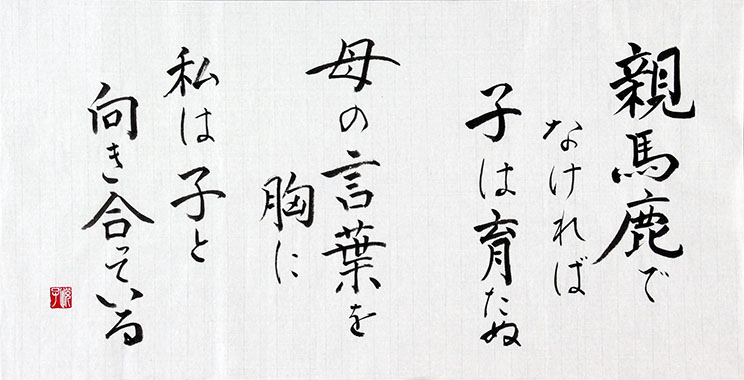 親馬鹿で
なければ
子は育たぬ
母の言葉を
胸に
私は子と
向き合っている